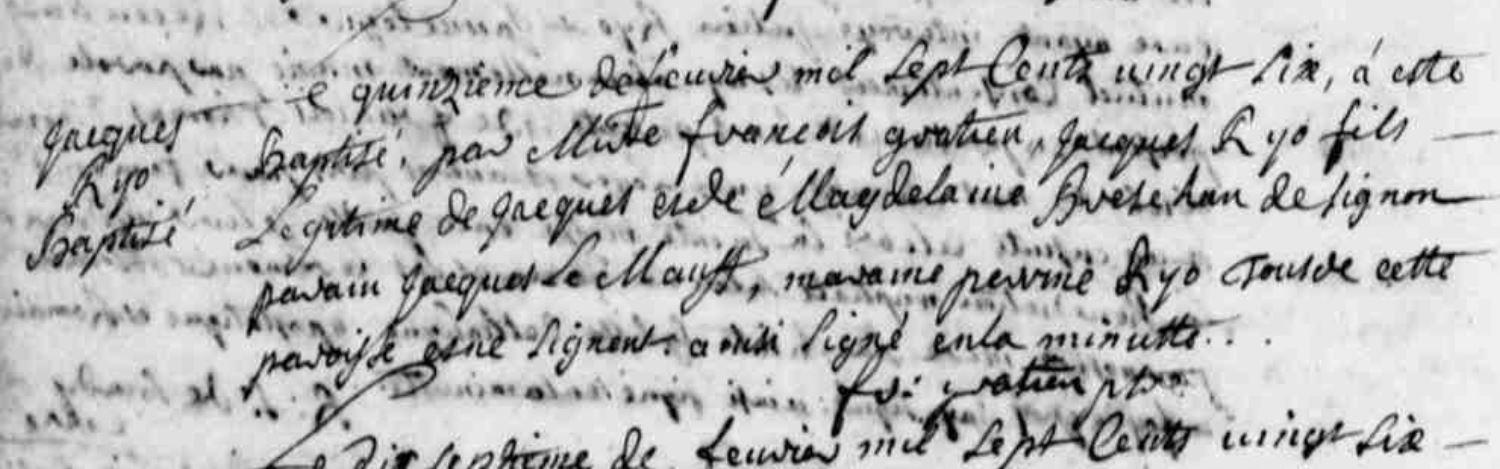 Le quinzieme de feuvrier mil sept Cents uingt six, á esté
Jacques
Ryo
Baptisé
Baptisé, par Mire francois gratien, Jacques Ryo fils
Legitime de Jacques et de Magdelaine Brechan de signon
parain Jacques Le Mauff, maraine perrine Ryo Tous de cette
paroisse et ne signent. ainsi signé en la minutte...
fr: gratien ptre
Le dix septieme de feuvrier mil sept Cents uingt six